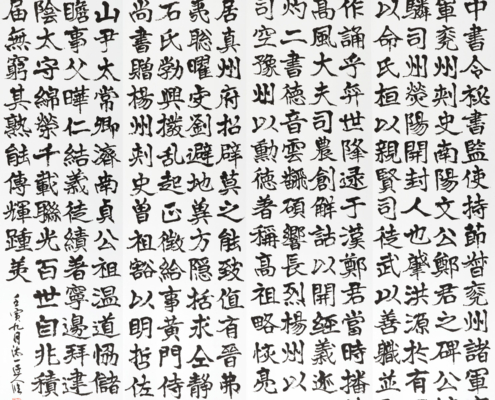 中書令秘書監使持節督兗州諸軍
軍兗州刺史南陽文公鄭君之碑公
驎司州滎陽開封人也肇洪源於有
以命氏桓以親賢司徒武以善職並
作誦乎弈世降逮于漢鄭君當時播
高風大夫司農創解詁以開經義迹
灼二書德音雲翻碩響長烈揚州
司空豫州以勳德著稱高祖略恢亮
居真州府招辟莫之能致值有晉弗
競聰曜虔劉避地冀方隱括求全靜
石氏勃興撥亂起正徵給事黃門侍
尚書贈揚州刺史曾祖豁以明哲佐
山尹太常卿濟南貞公祖溫道協儲
瞻事父曄仁結義徒績著寧邊拜建
陰太守綿榮千載聯光百世自非積
屆無窮其熟能傳輝踵美
壬寅九月